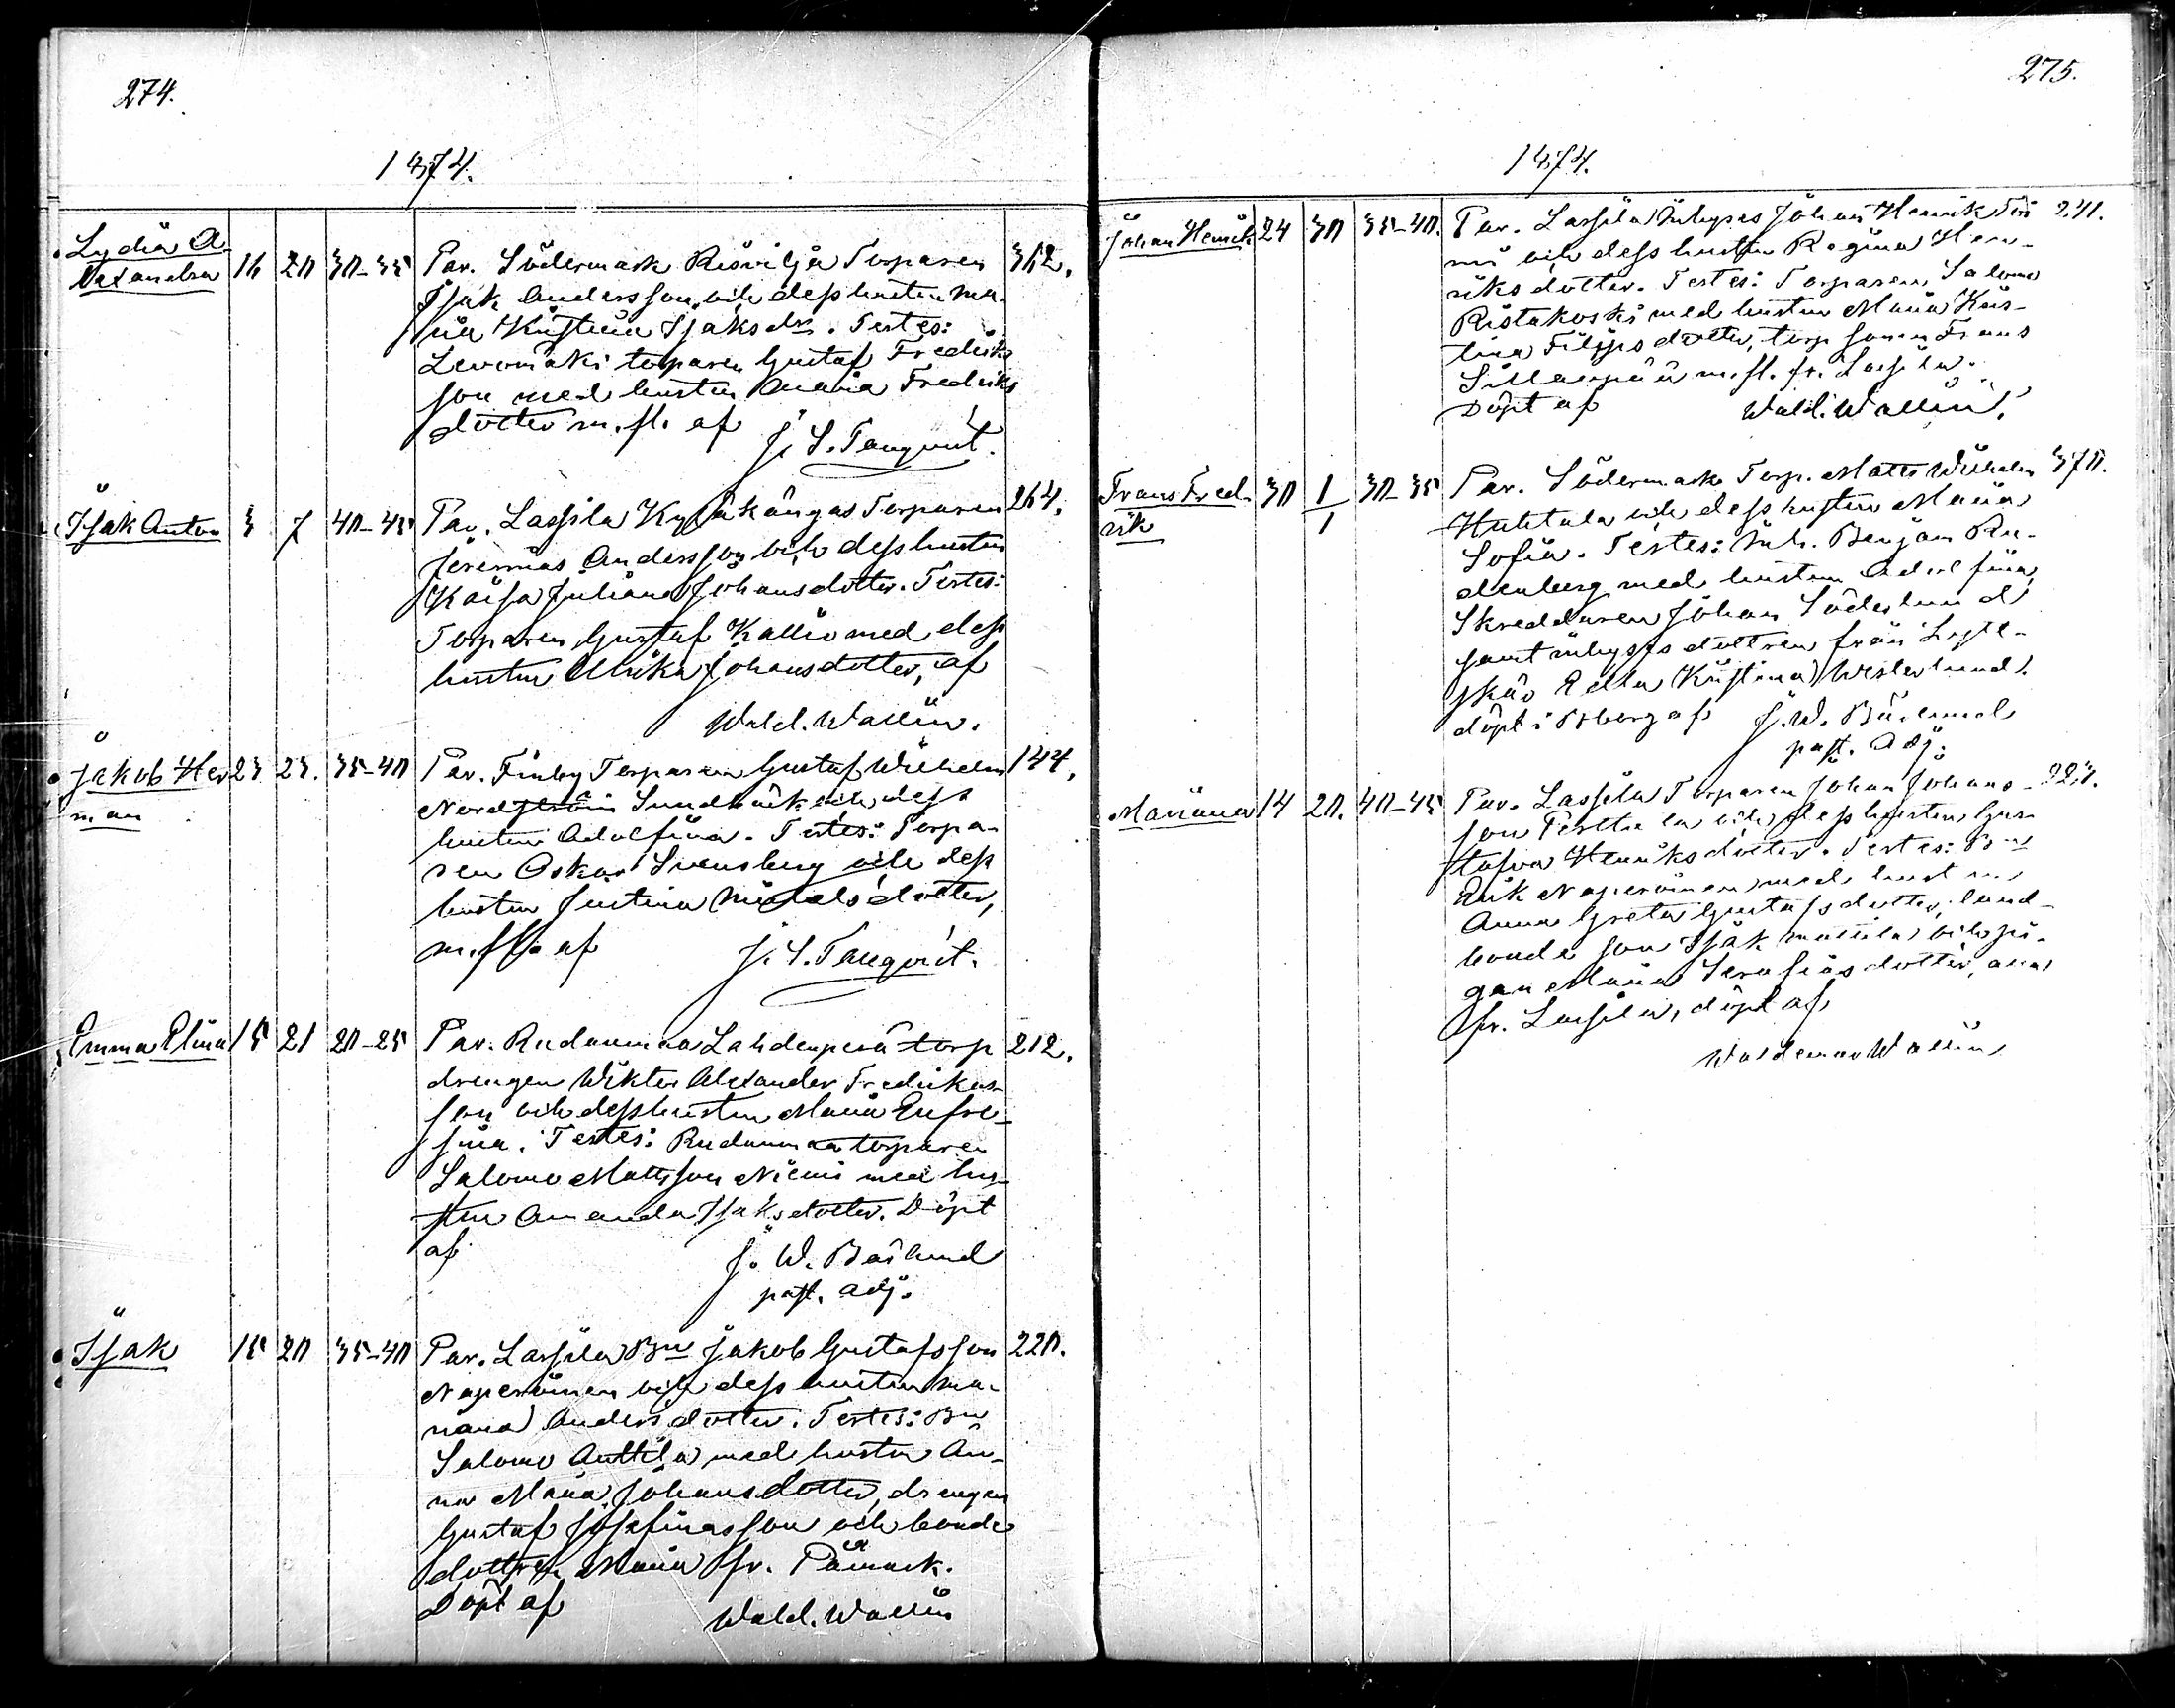 274.
1874.
Lydia A-
lexandra 16 20 30-35 Par. Södermark Risvilja Torparen 362.
Isak Andersson och dess hustru Ma-
ria Kristina Isaksdr. Testes:
Levomäki torparen Gustaf Fredriks
son med hustru Maria Fredriks
dotter m. fl. af
J. S. Tanqvist.
Isak Anton 3 7 40-45 Par. Lassila Kyläkangas Torparen 264.
Jeremias Andersson och dess hustru
Kaisa Juliana Johansdotter. Testes:
Torparen Gustaf Kallio med dess
hustru Ulrika Johansdotter, af
Wald. Wallin.
Jakob Her 23 23. 35-40 Par. Finby Torparen Gustaf Wilhelm 144.
man Nordström Sundbäck och dess
hustru Adolfina. Testes: Torpa-
ren Oskar Svensberg och dess
hustru Justina Mickelsdotter,
m. fl. af J. S. Tanqvist.
Emma Elina 15 21 20-25 Par. Rudanmaa Lahdenperä torp 212.
drengen Wiktor Alexander Fredrikas-
son och dess hustru Maria Eufro-
sina. Testes: Rudanmaa torparen
Salomo Mattsson Niemi med hu-
stru Amanda Isaksdotter. Döpt
af J. W. Båslund
past. adj.
Isak 15 20 35-40 Par. Lassila Bn Jakob Gustafsson 220.
Naperoinen och dess hustru Ma-
riana Andersdotter. Testes: Bn
Salomo Anttila med hustru An-
na Maria Johansdotter, drengen
Gustaf Josefinasson och bonde
dottren Maria fr. Påmark.
Döpt af
Wald. Wallin
275.
1874.
Johan Henrik 24 30 35-40. Par. Lassila Inhyses Johan Henrik 241.
och dess hustru Regina Hen-
riksdotter. Testes: Torparen Salomo
Ristakoski med hustru Maria Kris-
tina Filipsdotter, torp sonen Frans
Sillanpää m. fl. fr. Lassila.
Döpt af Wald. Wallin.
Frans Fred- 30 1/1 30-35 Par. Södermark Torp. Matts Wilhelm 370.
rik Huhtala och dess hustru Maria
Sofia. Testes: Inh. Benjam Ru-
denberg med hustru Adolfina,
Skreddaren Johan Söderlund
samt inhyses dottren från
skär Edla Kristina Westerlund.
döpt i af J. W. Båslund
past. adj.
Mariana 14 20. 40-45 Par. Lassila Torparen Johan Johans- 227.
son Perttula och dess hustru Gus-
tafva Henriksdotter. Testes: Bn
Erik Naperoinen med hustru
Anna Greta Gustafsdotter, land-
bonde son Isak Mattila och pi-
gan Maria Serafiasdotter, alla
fr. Lassila, döpt af
Waldemar Wallin